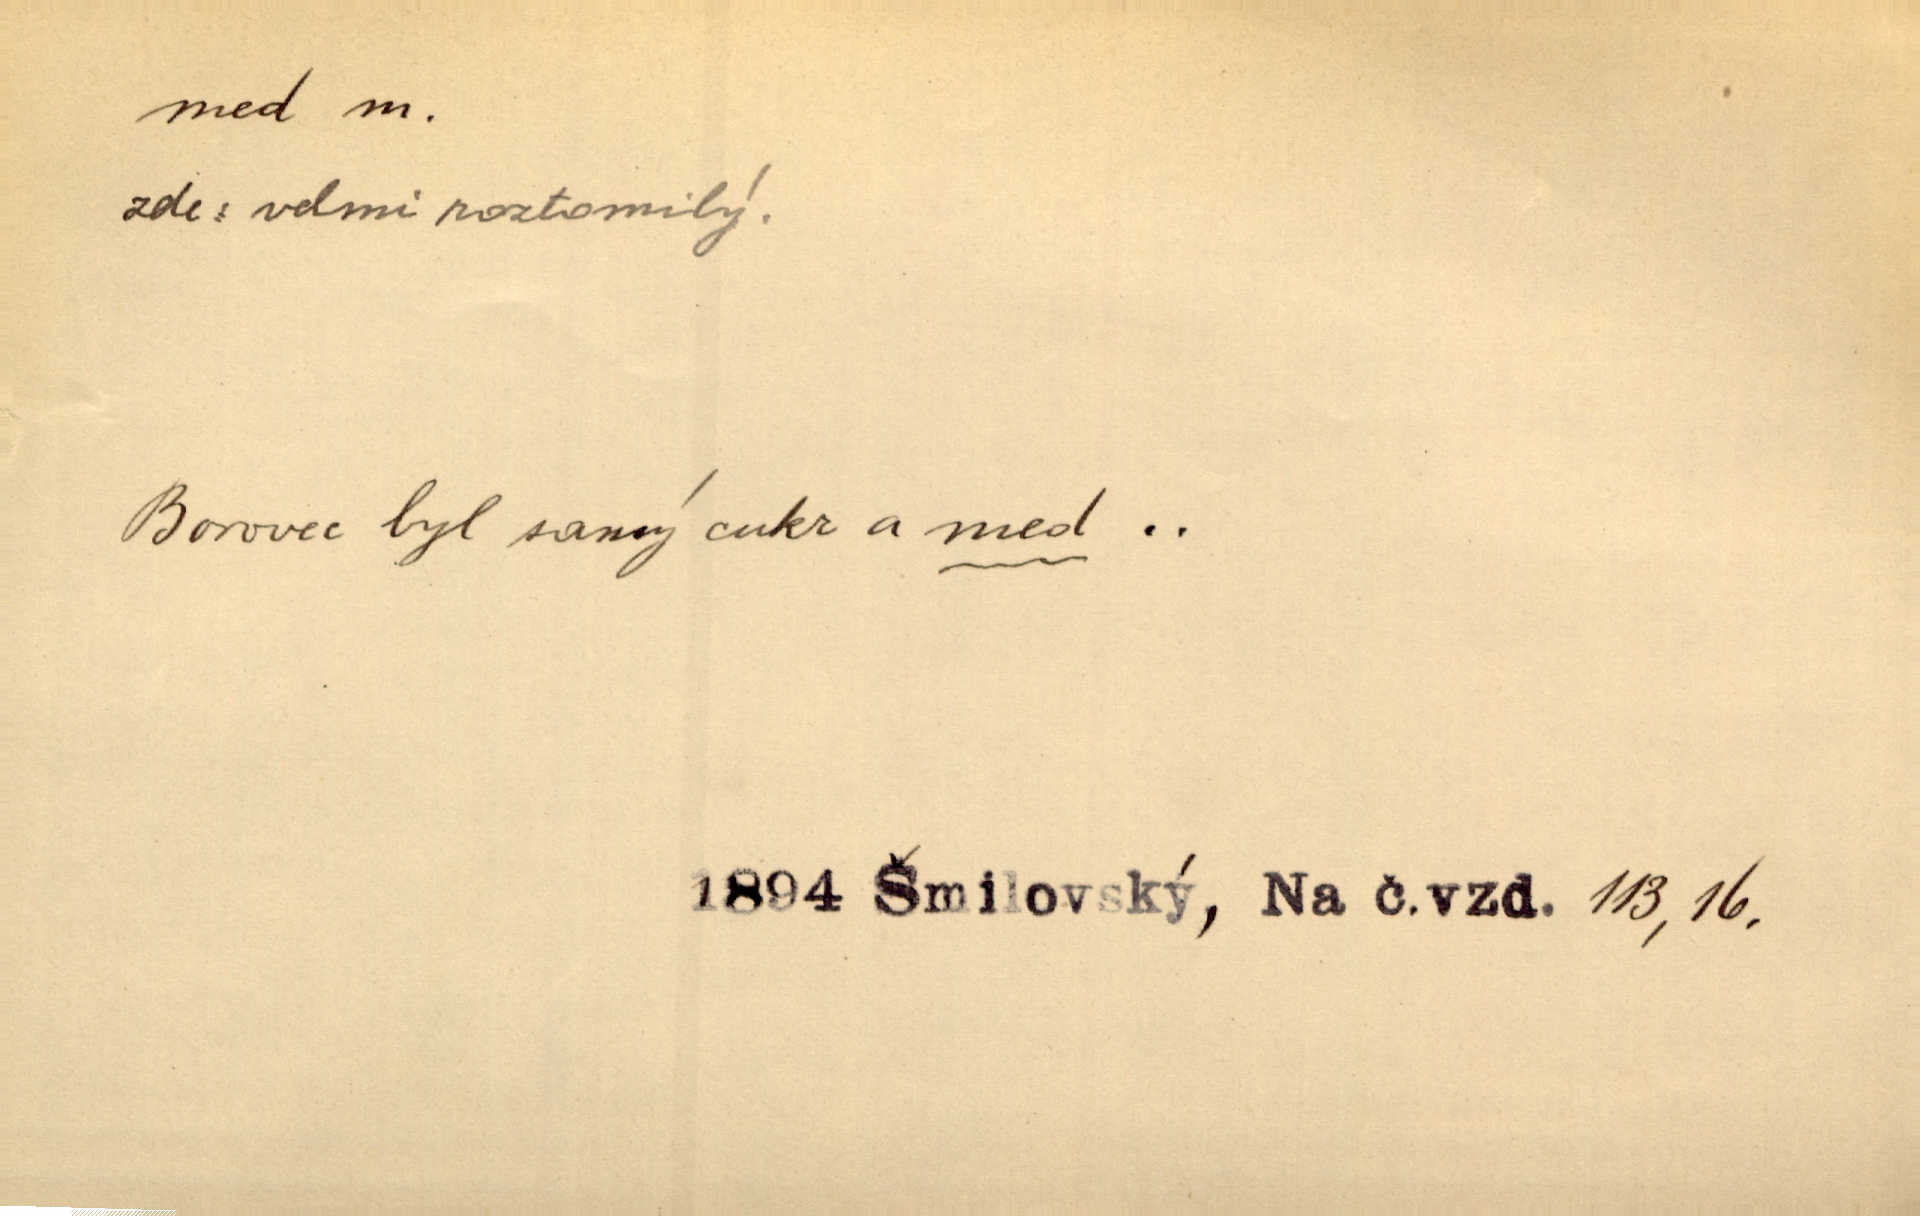 med m.
zde: velmi roztomilý.
Borovec byl samý cukr a med ..
1894 Šmilovský, Na č.vzd. 113, 16.